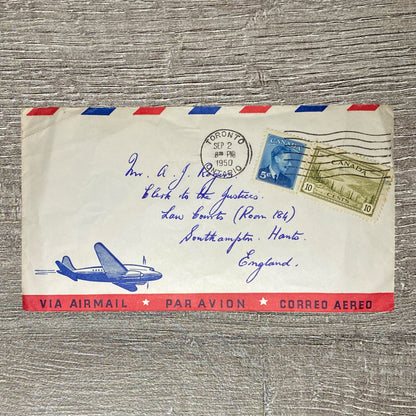 TORONTO
SEP 2
8 PM
1950
ONTARIO
CANADA
5
CANADA
10 10
CENTS
Mr. A. J. Rogers
Clerk to the Justices.
Law Courts (Room 184)
Southampton. Hants.
England.
VIA AIRMAIL ★ PAR AVION ★ CORREO AEREO